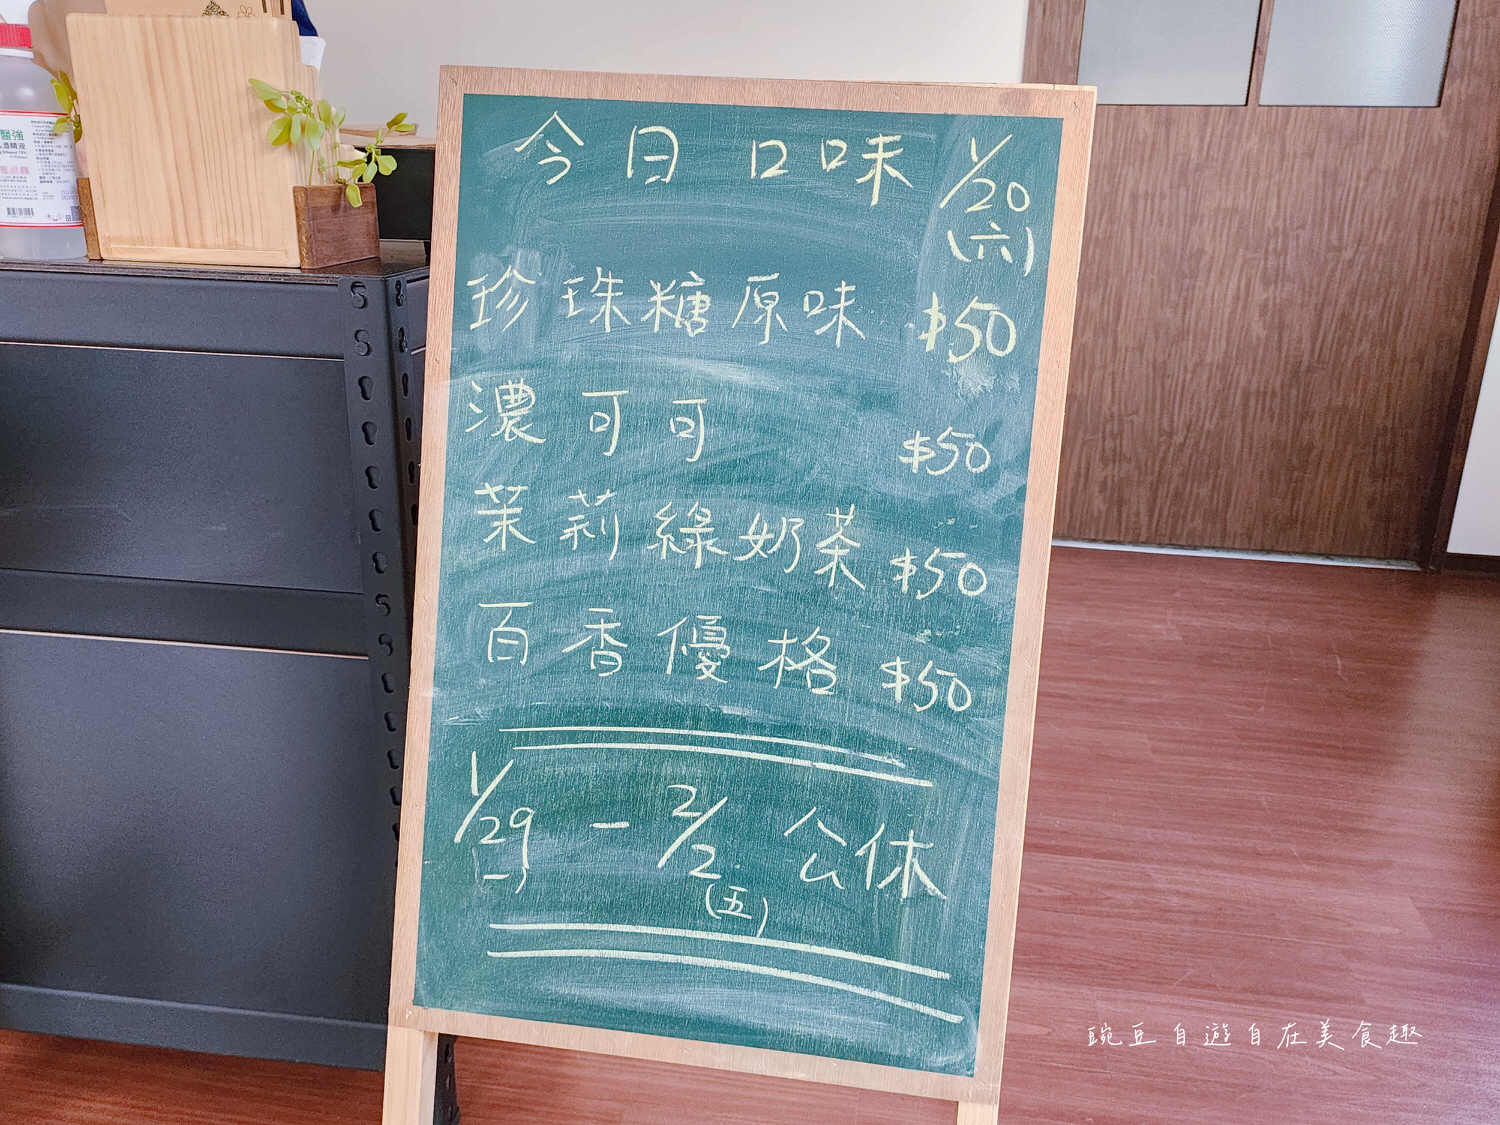 今日口味 1/20
(六)
珍珠糖原味 $50
濃可可 $50
茉莉綠奶茶 $50
百香優格 $50
1/29 - 2/2 公休
(一) (五)
醫強
豌豆自遊自在美食趣